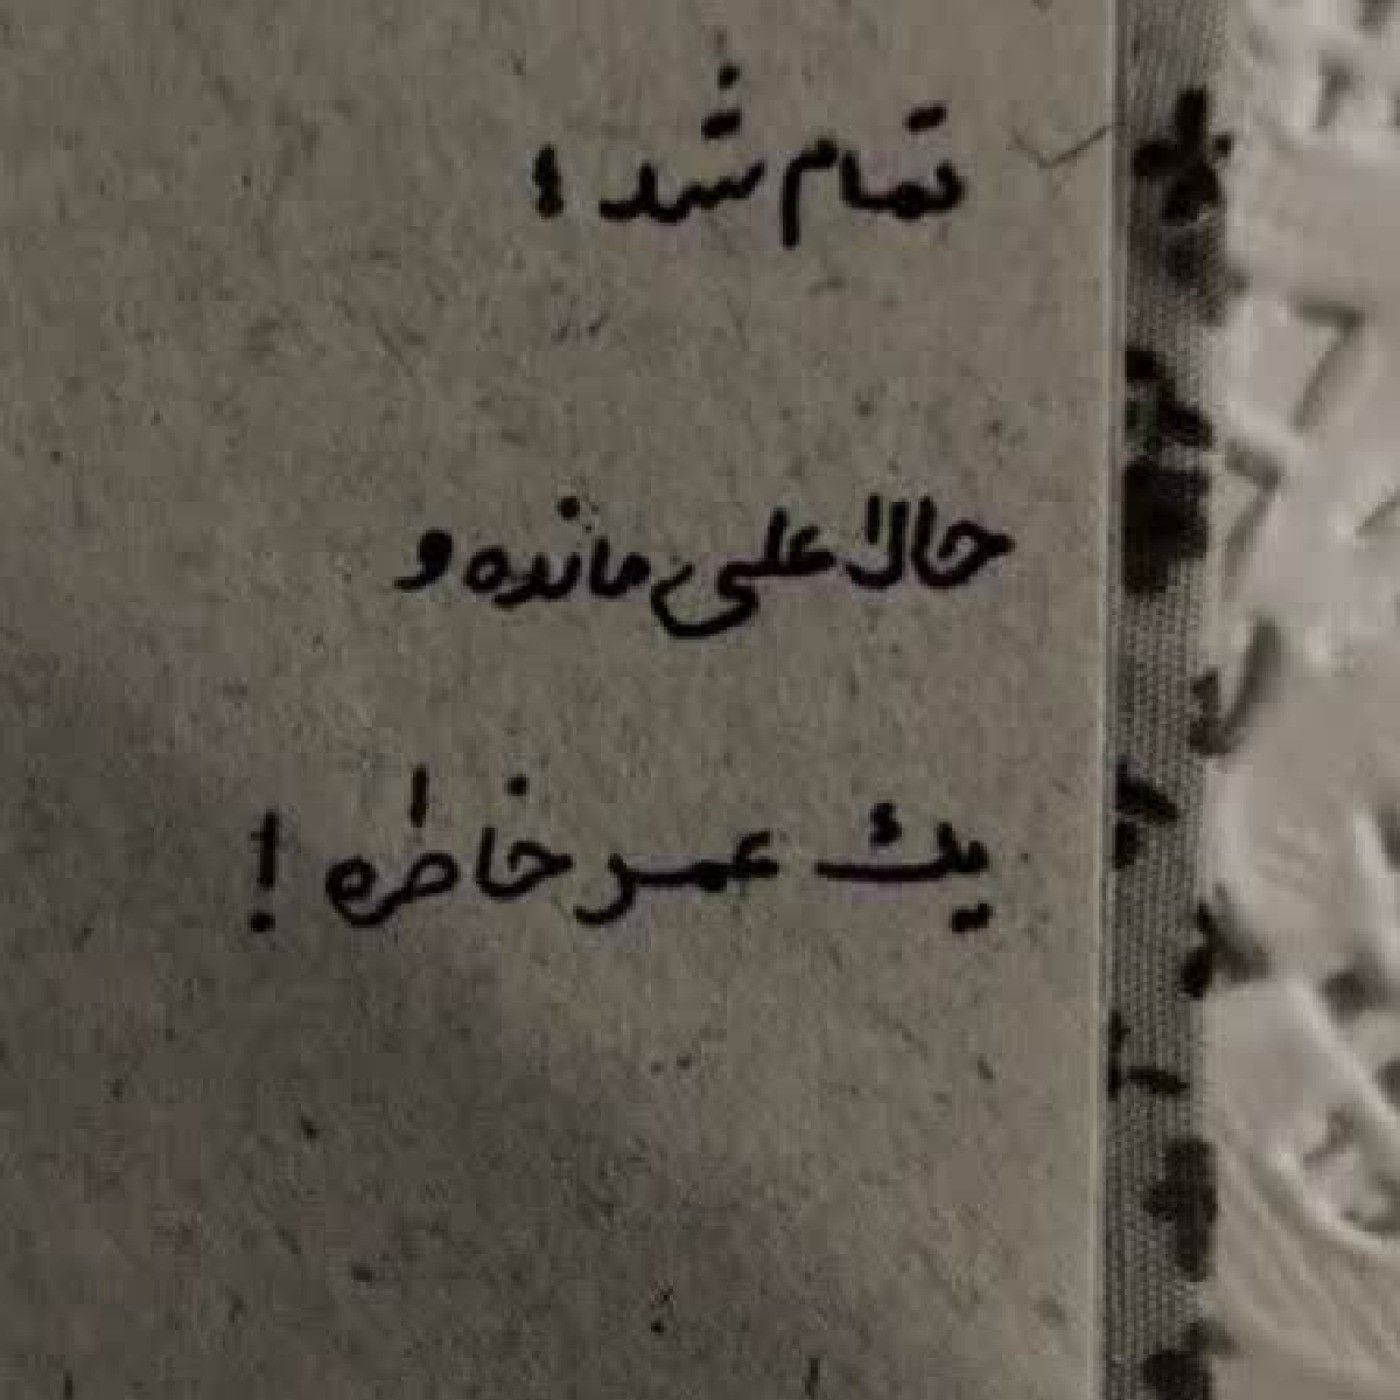 تمام شد؛
حالا علی مانده و
یک عمر خاطره!